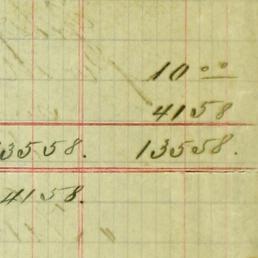 10 00
4158
13558. 13558.
4158.